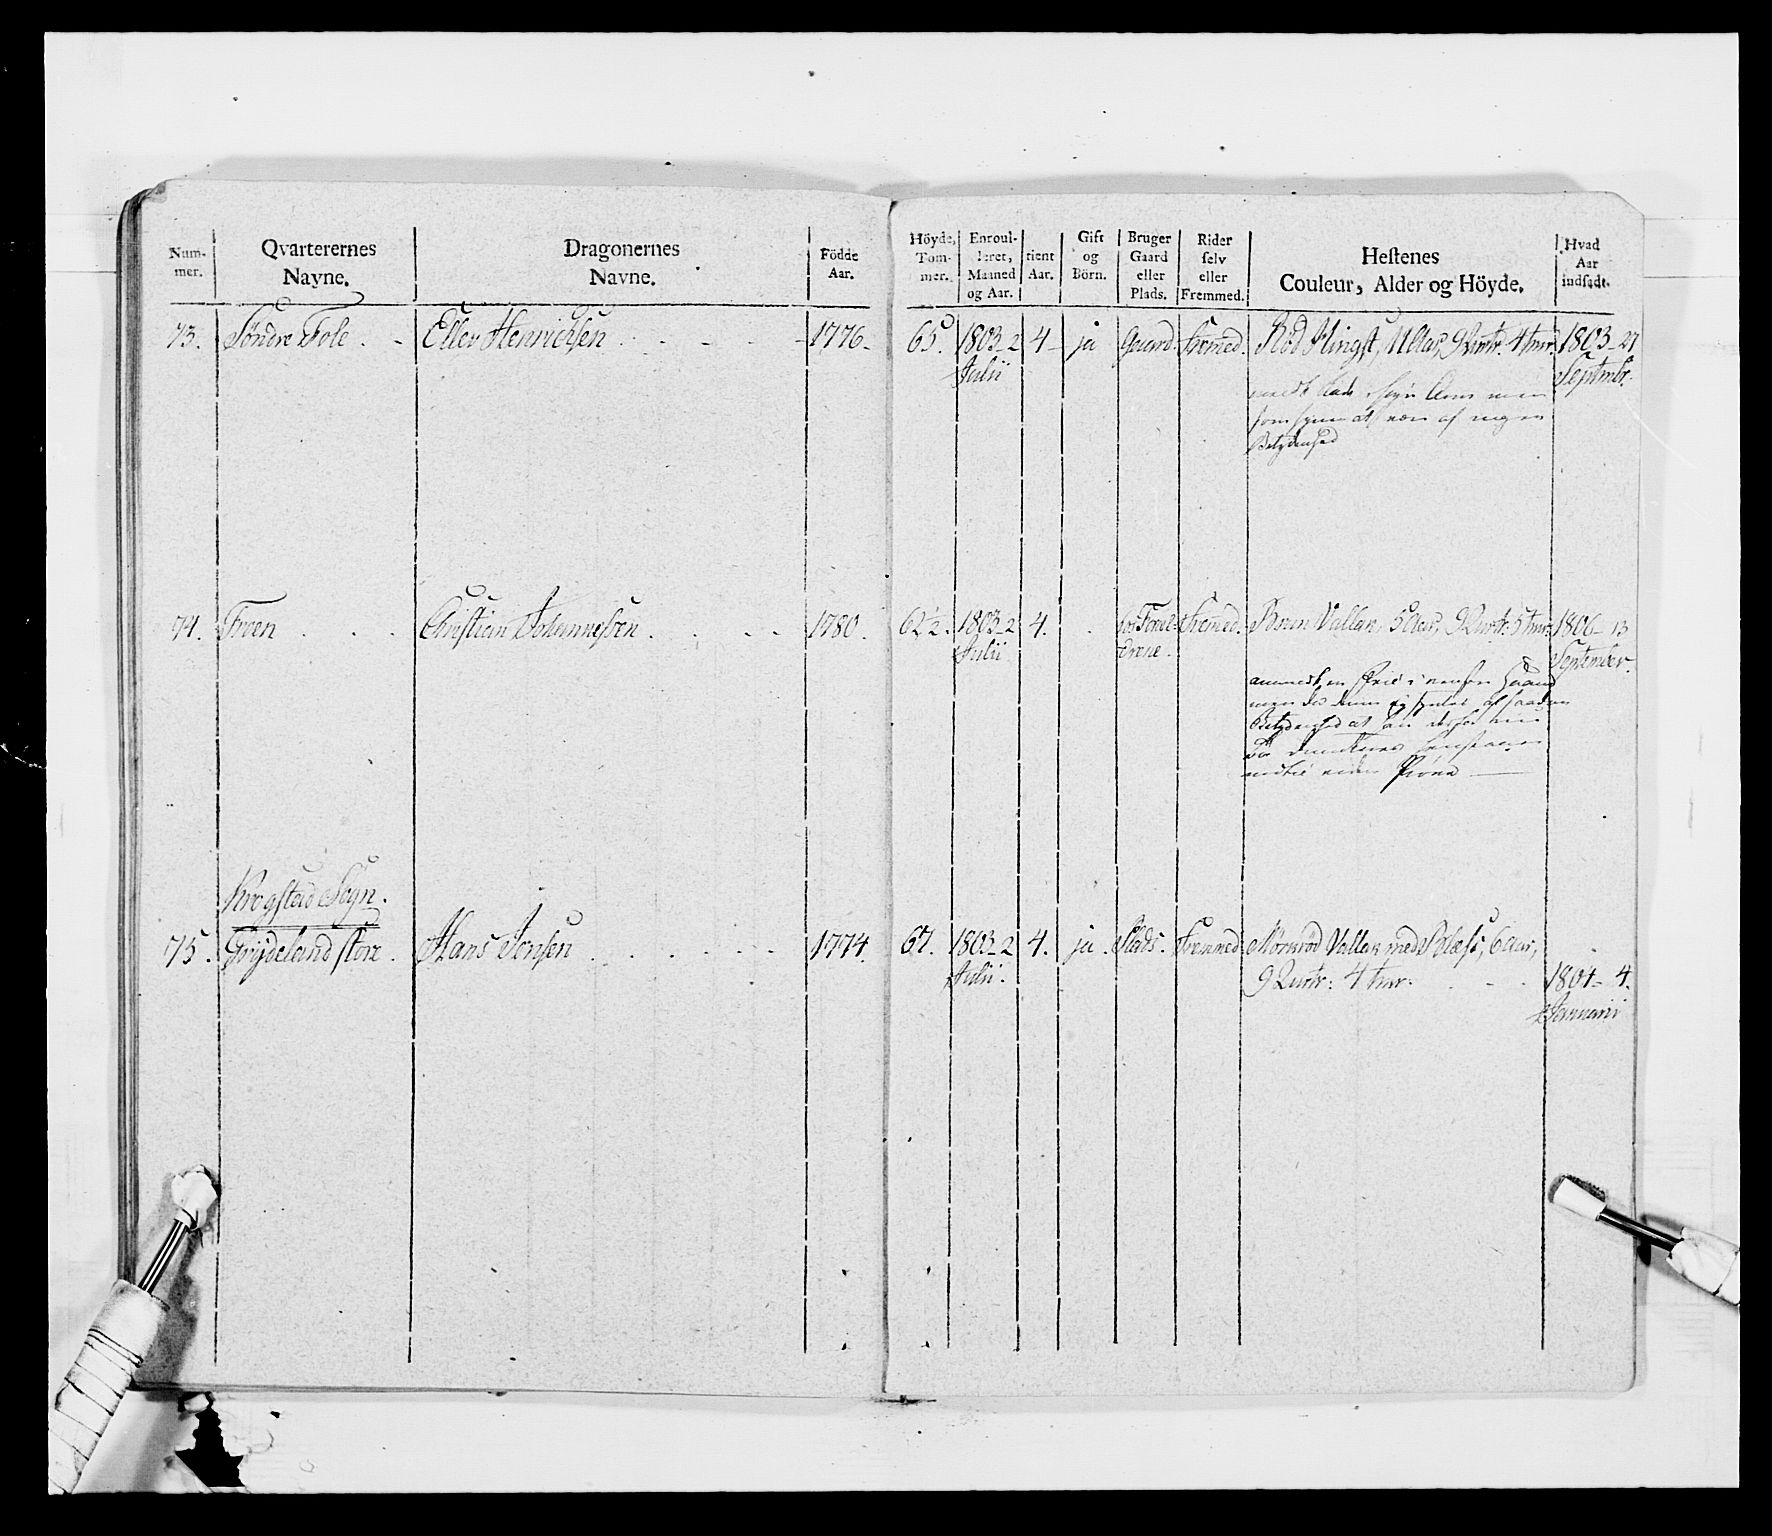 Num-
mer.
Qvarterernes
Navne.
Dragonernes
Navne.
Födde
Aar.
Höyde,
Tom-
mer.
Enroul-
leret,
Maaned
og Aar.
tient
Aar.
Gift
og
Börn.
Bruger
Gaard
eller
Plads.
Rider
selv
eller
Fremmed.
Hestenes
Couleur, Alder og Höyde.
Hvad
Aar
indsadt.
73. Søndre Fole Ellev Henrichsen 1776 65. 1803-2 4 ja Gaard Fremed. Rød Hingst, 11 Aar, 9 Qvrtr. 4 tmr. 1803-27
Julii Septmbr.
som synes at være af ingen
Betydenhed
74. Froen Christian Johannesen 1780. 62½. 1803-2 4. hos Foræl- Fremed. Brun Vallak, 5 Aar, 9 Qvrtr. 5 tmr. 1806-13
Julii drene. September.
Krogstad Sogn.
75. Grydeland store Hans Jensen 1774. 67. 1803-2 4. ja. Plads. Fremmed Mørkrød Vallak med Blæss, 6 Aar,
Julii. 9 Qvrtr: 4 tmr. 1804-4.
Januarii